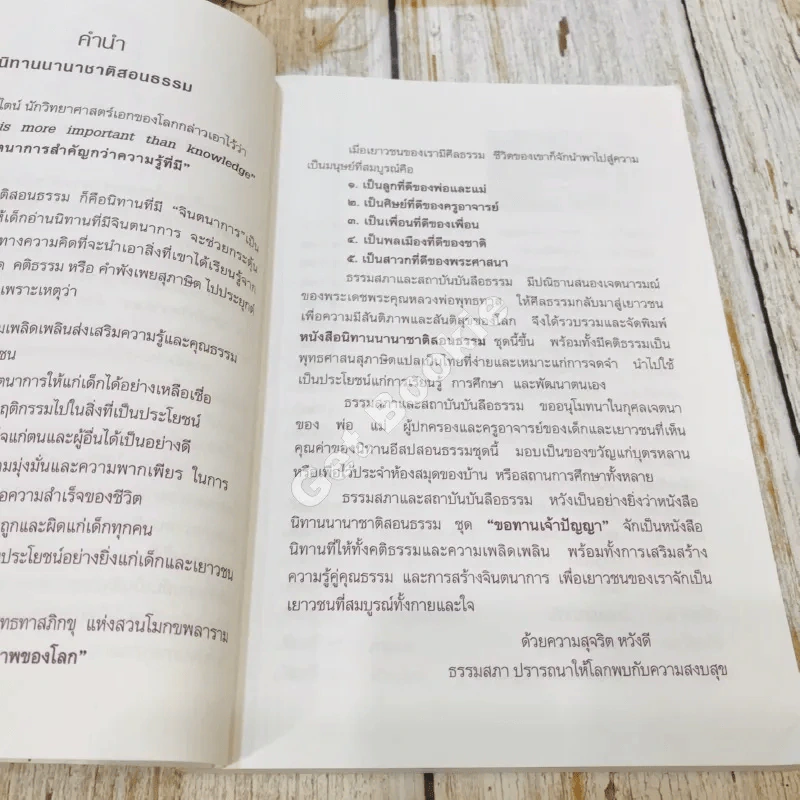 คำนำ
นิทานนานาชาติสอนธรรม
ไตน์ นักวิทยาศาสตร์เอกของโลกกล่าวเอาไว้ว่า
is more important than knowledge"
ตนาการสำคัญกว่าความรู้ที่มี"
ติสอนธรรม ก็คือนิทานที่มี "จินตนาการ"เป็น
ห้เด็กอ่านนิทานที่มีจินตนาการ จะช่วยกระตุ้น
ทางความคิดที่จะนำเอาสิ่งที่เขาได้เรียนรู้จาก
ด คติธรรม หรือ คำพังเพยสุภาษิต ไปประยุกต์
เพราะเหตุว่า
มเพลิดเพลินส่งเสริมความรู้และคุณธรรม
ชน
ตนาการให้แก่เด็กได้อย่างเหลือเชื่อ
ฤติกรรมไปในสิ่งที่เป็นประโยชน์
จแก่ตนและผู้อื่นได้เป็นอย่างดี
มมุ่งมั่นและความพากเพียร ในการ
อความสำเร็จของชีวิต
ถูกและผิดแก่เด็กทุกคน
ประโยชน์อย่างยิ่งแก่เด็กและเยาวชน
ทธทาสภิกขุ แห่งสวนโมกขพลาราม
าพของโลก"
เมื่อเยาวชนของเรามีศีลธรรม ชีวิตของเขาก็จักนำพาไปสู่ความ
เป็นมนุษย์ที่สมบูรณ์คือ
๑. เป็นลูกที่ดีของพ่อและแม่
๒. เป็นศิษย์ที่ดีของครูอาจารย์
๓. เป็นเพื่อนที่ดีของเพื่อน
๔. เป็นพลเมืองที่ดีของชาติ
๕. เป็นสาวกที่ดีของพระศาสนา
ธรรมสภาและสถาบันบันลือธรรม มีปณิธานสนองเจตนารมณ์
ของพระเดชพระคุณหลวงพ่อพุทธทาส ให้ศีลธรรมกลับมาสู่เยาวชน
เพื่อความมีสันติภาพและสันติสุขของโลก จึงได้รวบรวมและจัดพิมพ์
หนังสือนิทานนานาชาติสอนธรรม ชุดนี้ขึ้น พร้อมทั้งมีคติธรรมเป็น
พุทธศาสนสุภาษิตแปลเป็นไทยที่ง่ายและเหมาะแก่การจดจำ นำไปใช้
เป็นประโยชน์แก่การเรียนรู้ การศึกษา และพัฒนาตนเอง
ธรรมสภาและสถาบันบันลือธรรม ขออนุโมทนาในกุศลเจตนา
ของ พ่อ แม่ ผู้ปกครองและครูอาจารย์ของเด็กและเยาวชนที่เห็น
คุณค่าของนิทานอีสปสอนธรรมชุดนี้ มอบเป็นของขวัญแก่บุตรหลาน
หรือเพื่อไว้ประจำห้องสมุดของบ้าน หรือสถานการศึกษาทั้งหลาย
ธรรมสภาและสถาบันบันลือธรรม หวังเป็นอย่างยิ่งว่าหนังสือ
นิทานนานาชาติสอนธรรม ชุด "ขอทานเจ้าปัญญา" จักเป็นหนังสือ
นิทานที่ให้ทั้งคติธรรมและความเพลิดเพลิน พร้อมทั้งการเสริมสร้าง
ความรู้คู่คุณธรรม และการสร้างจินตนาการ เพื่อเยาวชนของเราจักเป็น
เยาวชนที่สมบูรณ์ทั้งกายและใจ
ด้วยความสุจริต หวังดี
ธรรมสภา ปรารถนาให้โลกพบกับความสงบสุข
Get Bookie